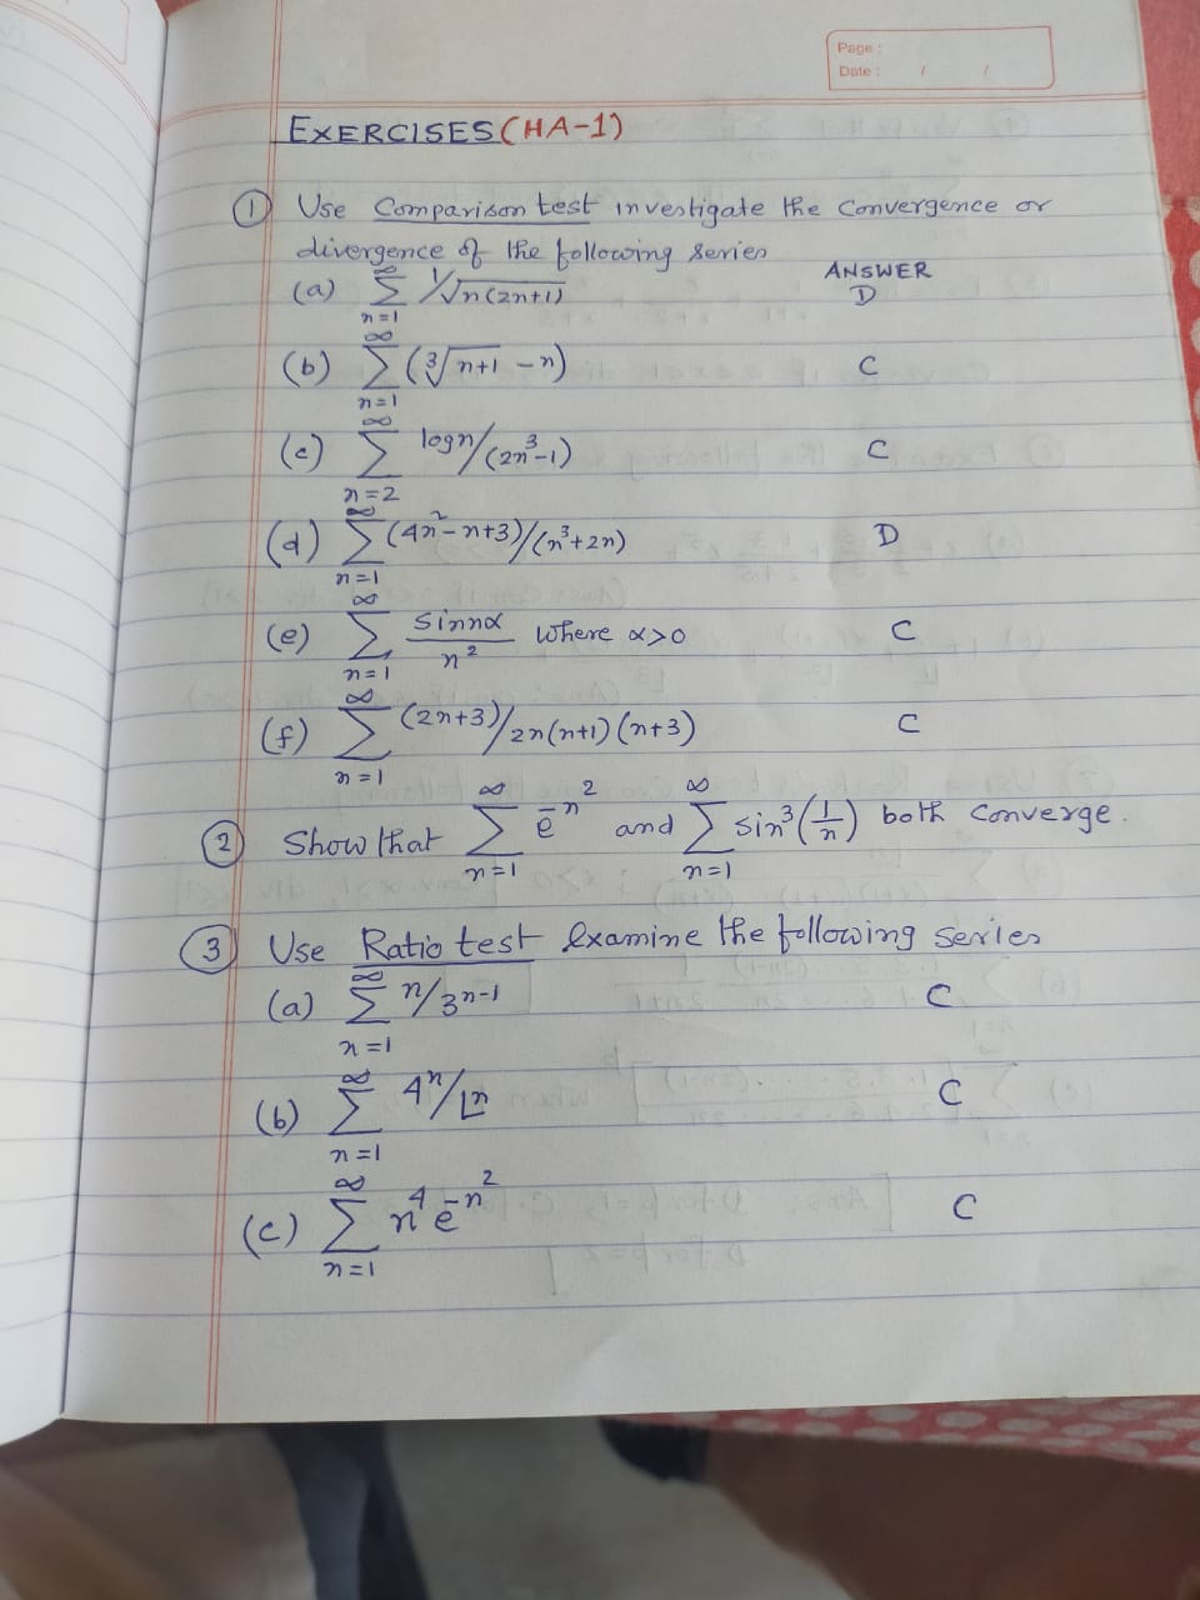 Page :
Date : / /
EXERCISES (HA-1)
① Use Comparison test investigate the convergence or
divergence of the following series
ANSWER
(a) ∞ Σ n=1 1/√n(2n+1) D
(b) ∞ Σ n=1 (∛n+1 - n) C
(c) ∞ Σ n=2 logn/(2n³-1) C
(d) ∞ Σ n=1 (4n²-n+3)/(n³+2n) D
(e) ∞ Σ n=1 sinnα/n² where α>0 C
(f) ∞ Σ n=1 (2n+3)/2n(n+1)(n+3) C
② Show that ∞ Σ n=1 e^-n² and ∞ Σ n=1 sin³(1/n) both converge.
③ Use Ratio test examine the following series
(a) ∞ Σ n=1 n/3^n-1 C
(b) ∞ Σ n=1 4^n/∟n C
(c) ∞ Σ n=1 n⁴e^-n² C